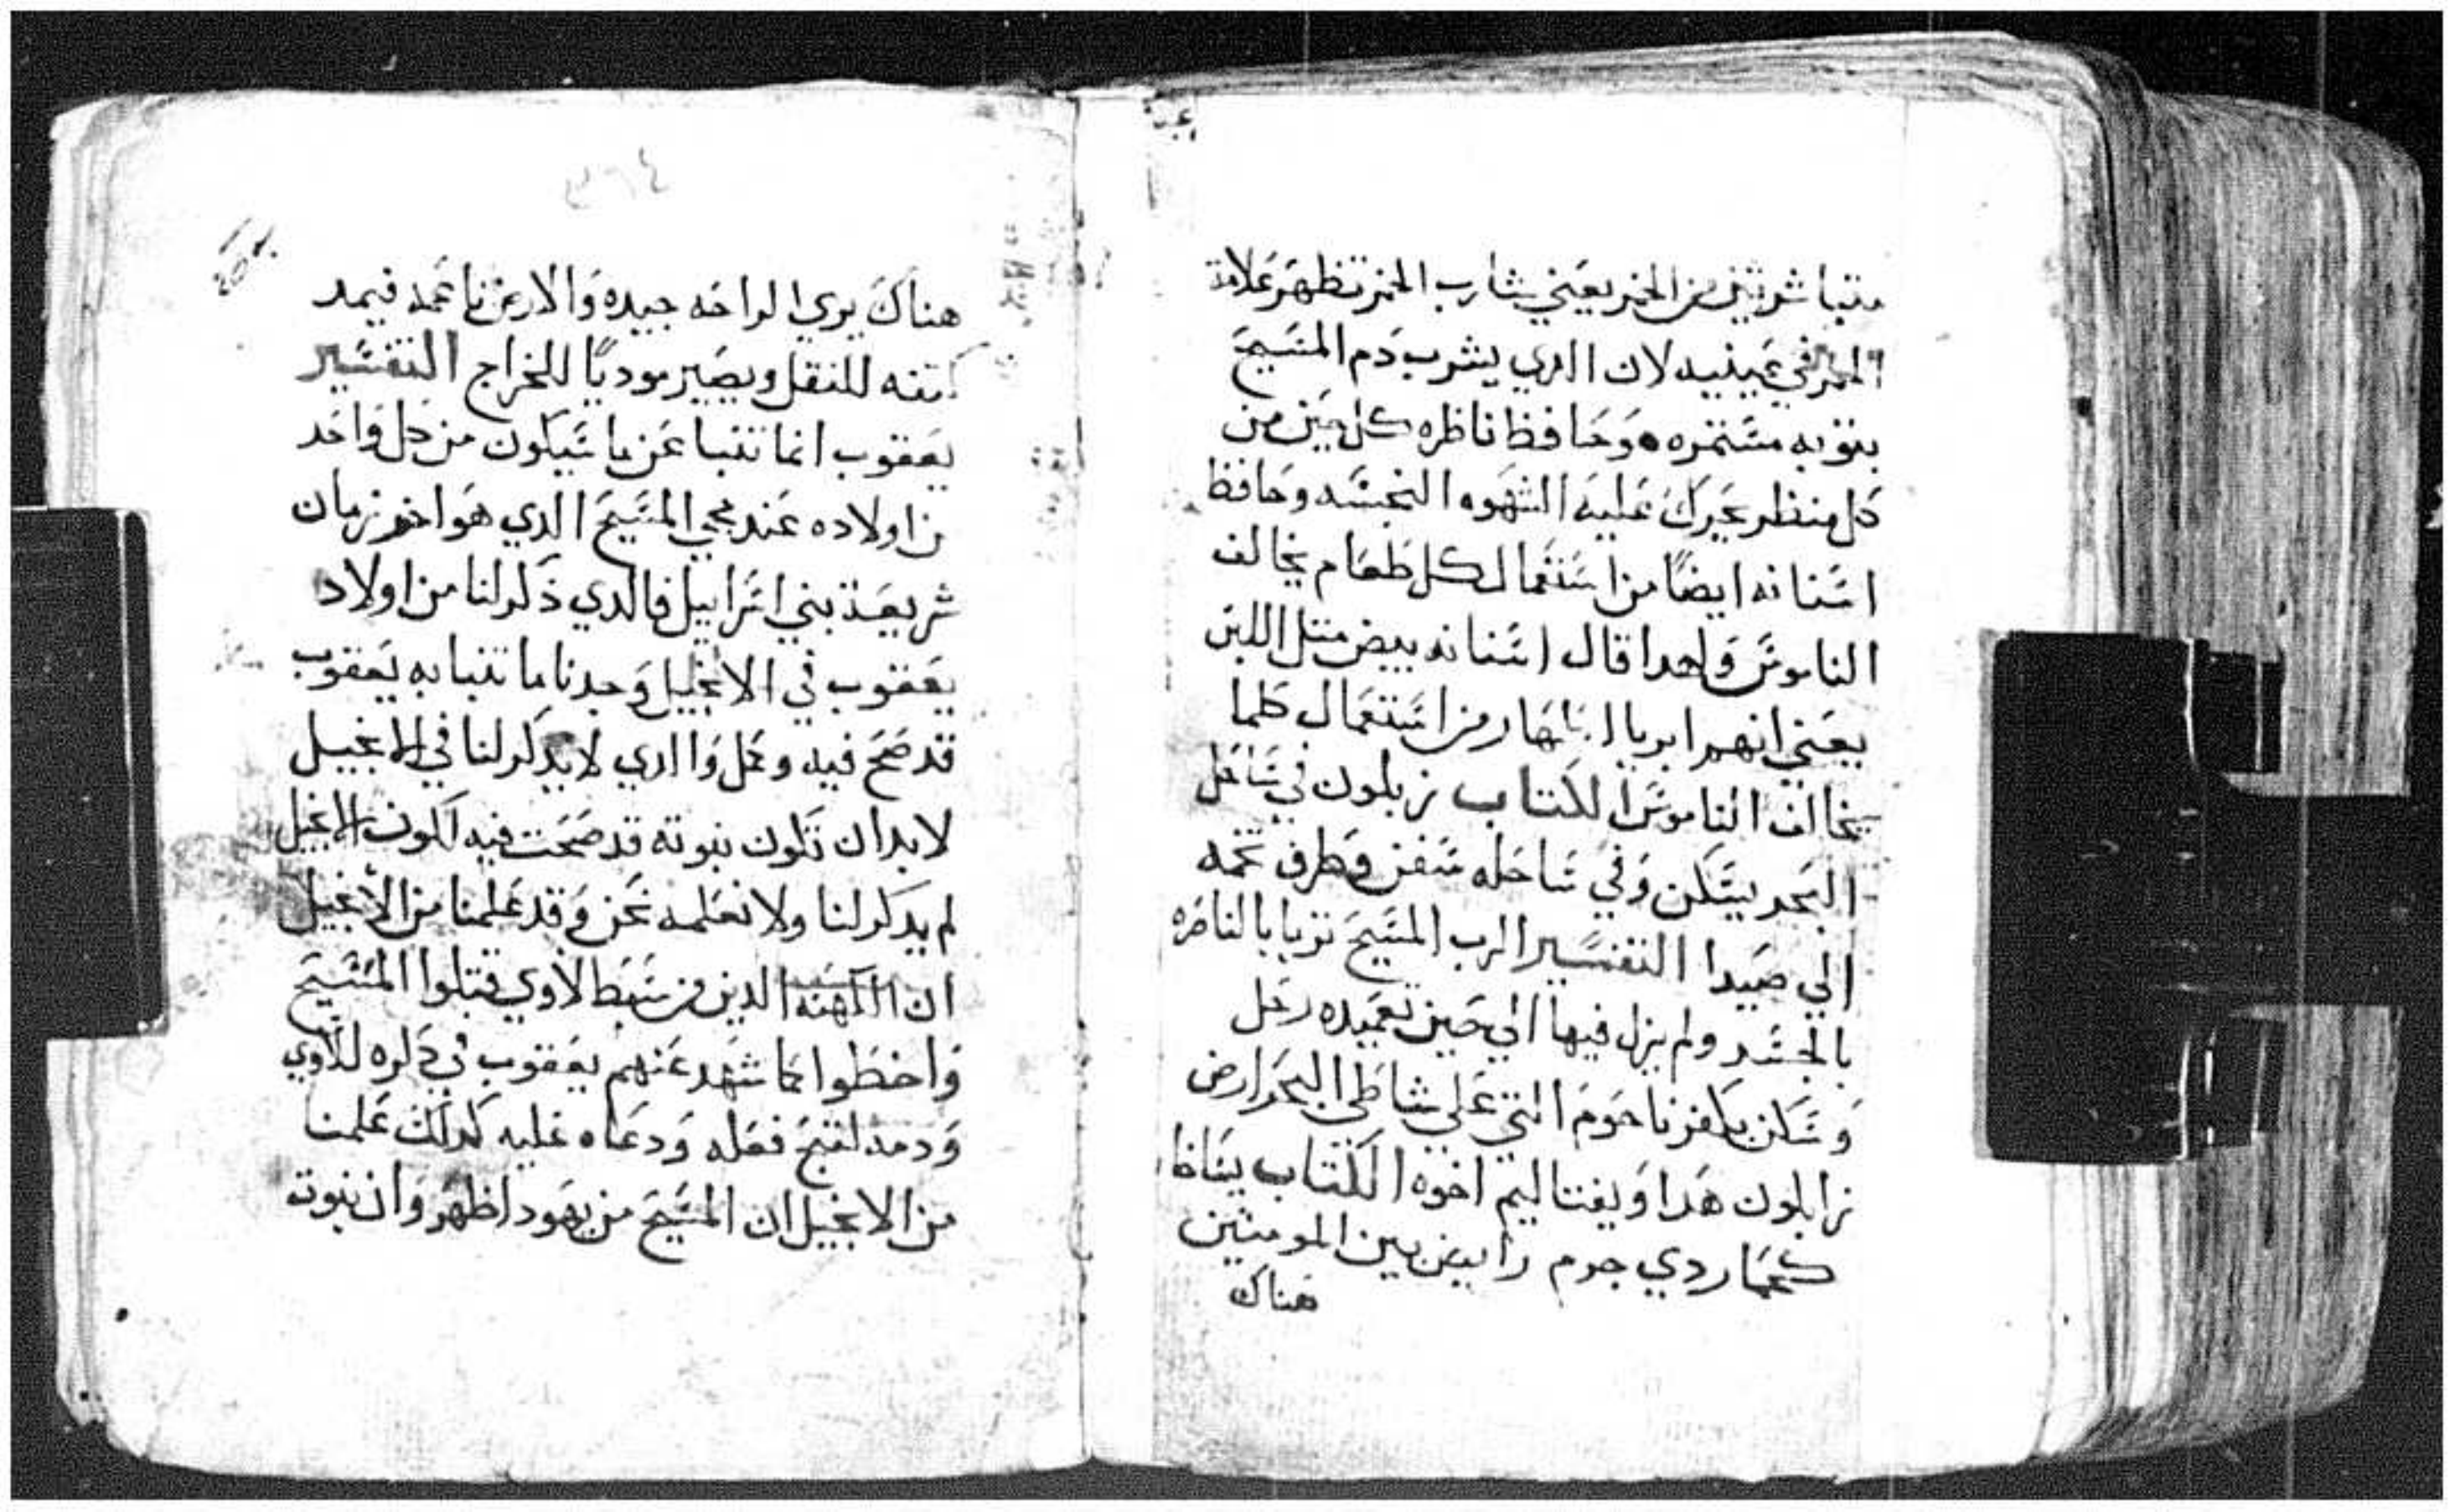 متباشرتين من الخمر يعني شارب الخمر تظهر علامة
الخمر في عينيه لان الدي يشرب دم المسيح
بتوبه مستمره وحافظا ناظره كل حين من
كل منظر يحرك عليه الشهوه النجسه وحافظ
اسنانه ايضًا من استعمال كل طعام يخالف
الناموس واحدا قال اسنانه بيض متل اللبن
يعني انهم ابريا اطهار من استعمال كلما
يخالف الناموس الكتاب زبلون في ساحل
البحر يسكن وفي ساحله سفن وطرف تخمه
الي صيدا التفسير الرب المسيح تربا بالناصره
بالجسد ولم يزل فيها الي حين تعميده رحل
وسكن بكفرناحوم التي علي شاطي البحر ارض
زابلون هدا ويفتاليم اخوه الكتاب يساخار
كحمار دي جرم رابض بين المومنين
هناك
٣٦٤
هناك يري الراحه جيده والارض ناعمه فيمد
كتفه للنقل ويصير موديًا للخراج التفسير
يعقوب انما تنبا عن ما سيكون من كل واحد
من اولاده عند مجي المسيح الدي هو اخر زمان
شريعة بني اسراييل فالدي دكر لنا من اولاد
يعقوب في الانجيل وجدنا ما تنبا به يعقوب
قد صح فيه وكل واالدي لا يدكر لنا في الانجيل
لابد ان تكون نبوته قد صحت فيه لكون الانجيل
لم يدكر لنا ولا نعلمه نحن وقد علمنا من الانجيل
ان الكهنه الدين من سبط لاوي قتلوا المسيح
واخطوا كما شهد عنهم يعقوب في دكره للاوي
ودمه لقبح فعله ودعاه عليه كدلك علمنا
من الانجيل ان المسيح من يهودا ظهر وان نبوة